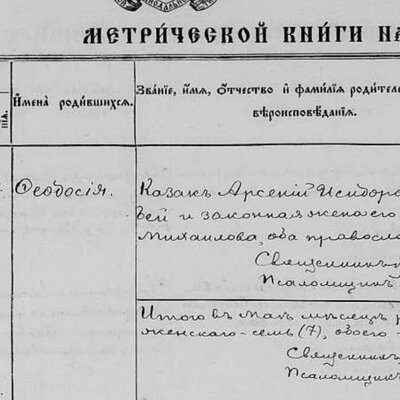 МЕТРИ́ЧЕСКОЙ КНИ́ГИ НА
И҆мена̀ роди́вшихсѧ.
Зва́нїе, и҆́мѧ, Ѻ҆́тчество и҆ фами́лїѧ роди́тел
вѣроисповѣ́данїѧ.
Ѳеодосія.
Казакъ Арсеній Исидоро
вей и законная жена его
Михаилова, оба правосла
Священникъ
Псаломщикъ
Итого въ маѣ мѣсяцѣ р
женскаго - семь (7), обоего
Священникъ
Псаломщикъ